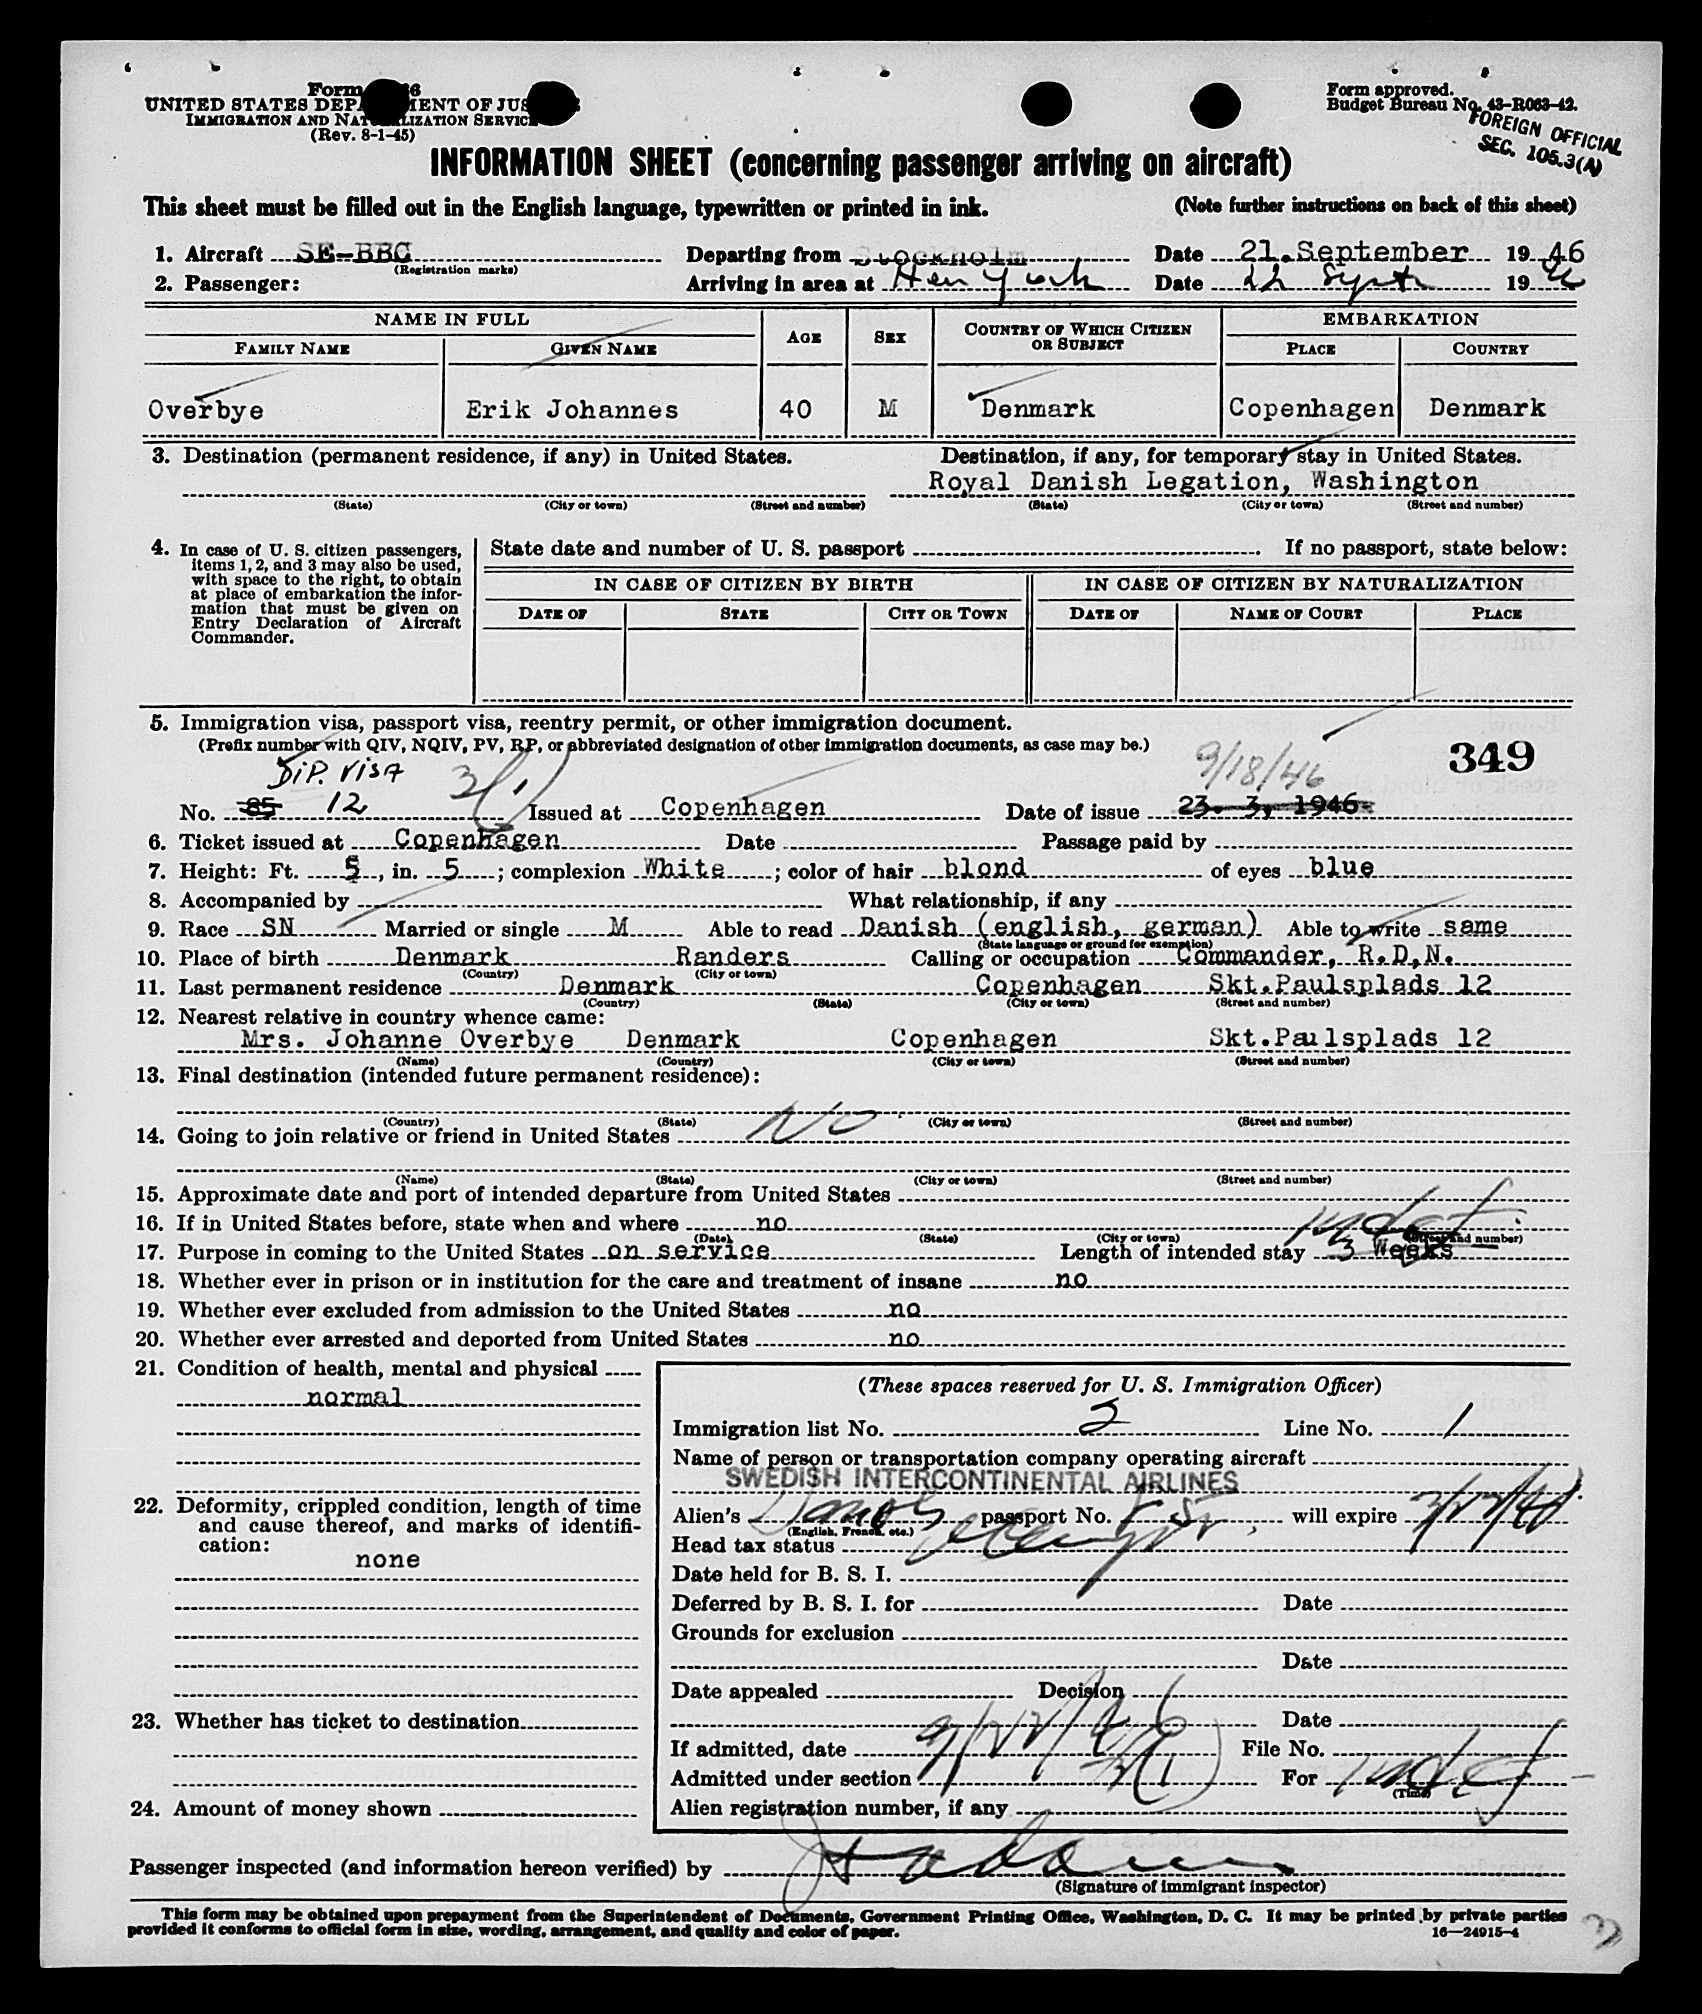 Form
UNITED STATES DEPARTMENT OF JUSTICE
IMMIGRATION AND NATURALIZATION SERVICE
(Rev. 8-1-45)
Form approved.
Budget Bureau No. 43-R063-42.
FOREIGN OFFICIAL
SEC. 105.3(A)
INFORMATION SHEET (concerning passenger arriving on aircraft)
This sheet must be filled out in the English language, typewritten or printed in ink. (Note further instructions on back of this sheet)
1. Aircraft SE-BBC Departing from Stockholm Date 21.September 19 46
(Registration marks)
2. Passenger: Arriving in area at New York Date 22 Sept 19
NAME IN FULL AGE SEX COUNTRY OF WHICH CITIZEN OR SUBJECT EMBARKATION
FAMILY NAME GIVEN NAME PLACE COUNTRY
Overbye Erik Johannes 40 M Denmark Copenhagen Denmark
3. Destination (permanent residence, if any) in United States. Destination, if any, for temporary stay in United States.
Royal Danish Legation, Washington
(State) (City or town) (Street and number) (State) (City or town) (Street and number)
4. In case of U. S. citizen passengers, items 1, 2, and 3 may also be used, with space to the right, to obtain at place of embarkation the information that must be given on Entry Declaration of Aircraft Commander.
State date and number of U. S. passport . If no passport, state below:
IN CASE OF CITIZEN BY BIRTH IN CASE OF CITIZEN BY NATURALIZATION
DATE OF STATE CITY OR TOWN DATE OF NAME OF COURT PLACE
5. Immigration visa, passport visa, reentry permit, or other immigration document.
(Prefix number with QIV, NQIV, PV, RP, or abbreviated designation of other immigration documents, as case may be.)
349
DIP. VISA 3(1) 9/18/46
No. 85 12 Issued at Copenhagen Date of issue 23. 3, 1946
6. Ticket issued at Copenhagen Date Passage paid by
7. Height: Ft. 5, in. 5; complexion White; color of hair blond of eyes blue
8. Accompanied by What relationship, if any
9. Race SN Married or single M Able to read Danish (english, german) Able to write same
(State language or ground for exemption)
10. Place of birth Denmark Randers Calling or occupation Commander, R.D.N.
(Country) (City or town)
11. Last permanent residence Denmark Copenhagen Skt.Paulsplads 12
(Country) (State) (City or town) (Street and number)
12. Nearest relative in country whence came:
Mrs. Johanne Overbye Denmark Copenhagen Skt.Paulsplads 12
(Name) (Country) (City or town) (Street and number)
13. Final destination (intended future permanent residence):
(Country) (State) (City or town) (Street and number)
14. Going to join relative or friend in United States NO
(Name) (State) (City or town) (Street and number)
15. Approximate date and port of intended departure from United States
16. If in United States before, state when and where no
(Date) (State) (City or town) (Street and number)
indef.
17. Purpose in coming to the United States on service Length of intended stay 3 Weeks
18. Whether ever in prison or in institution for the care and treatment of insane no
19. Whether ever excluded from admission to the United States no
20. Whether ever arrested and deported from United States no
21. Condition of health, mental and physical
normal
22. Deformity, crippled condition, length of time and cause thereof, and marks of identification:
none
23. Whether has ticket to destination
24. Amount of money shown
(These spaces reserved for U. S. Immigration Officer)
Immigration list No. 2 Line No. 1
Name of person or transportation company operating aircraft
SWEDISH INTERCONTINENTAL AIRLINES
Alien's passport No. will expire
(English, French, etc.)
Head tax status Exempt
Date held for B. S. I.
Deferred by B. S. I. for Date
Grounds for exclusion
Date
Date appealed Decision
Date
If admitted, date 9/22/46 File No.
Admitted under section 3(1) For indef
(Time)
Alien registration number, if any
Passenger inspected (and information hereon verified) by
(Signature of immigrant inspector)
This form may be obtained upon prepayment from the Superintendent of Documents, Government Printing Office, Washington, D. C. It may be printed by private parties
provided it conforms to official form in size, wording, arrangement, and quality and color of paper. 16—24915-4